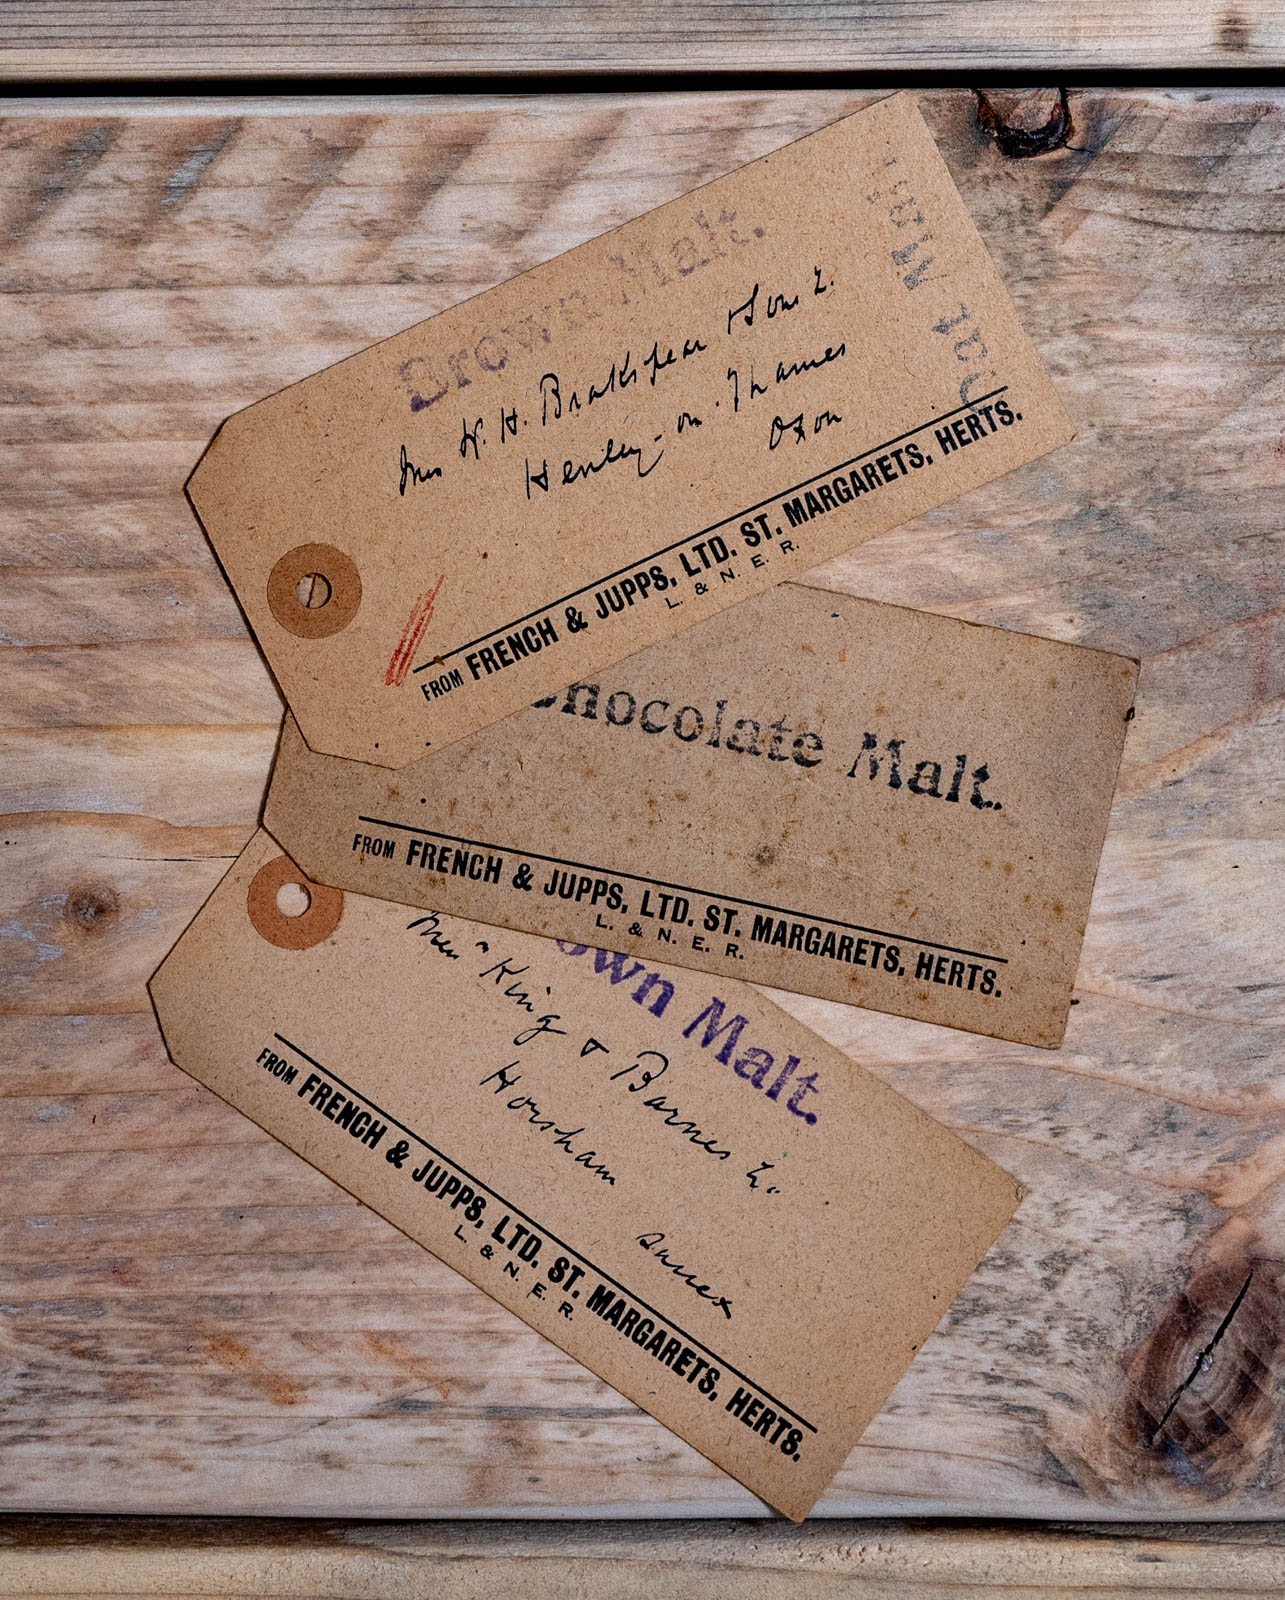 Brown Malt.
W. H. Brakspear & Sons L.
Henley-on-Thames
Oxon
Oat Malt
FROM FRENCH & JUPPS, LTD. ST. MARGARETS, HERTS.
L. & N. E. R.
Chocolate Malt.
FROM FRENCH & JUPPS, LTD. ST. MARGARETS, HERTS.
L. & N. E. R.
own Malt.
King & Barnes L.
Horsham
Sussex
FROM FRENCH & JUPPS, LTD. ST. MARGARETS, HERTS.
L. & N. E. R.